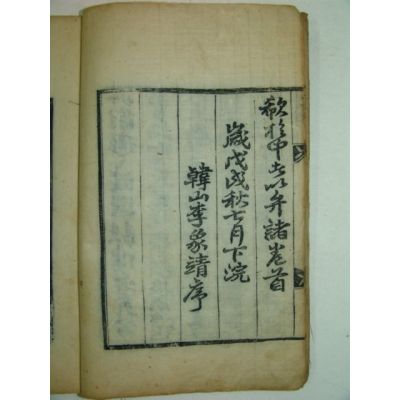 歉於中者以弁諸卷首
歲戊戌秋七月下浣
韓山李象靖序